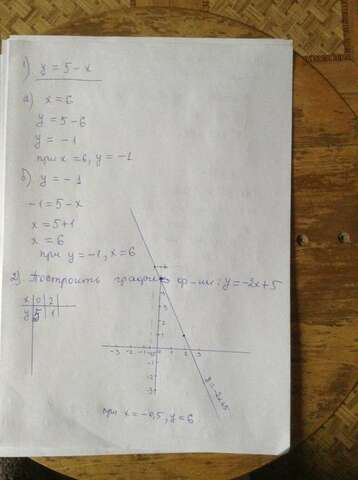 1) y = 5 - x
а) x = 6
y = 5 - 6
y = -1
при x = 6, y = -1
б) y = -1
-1 = 5 - x
x = 5+1
x = 6
при y = -1, x = 6
2) Построить график ф-ции: y = -2x + 5
x | 0 | 2
y | 5 | 1
-3 -2 -1 1 2 3
-1
-2
-3
y = -2x+5
при x = -0,5, y = 6